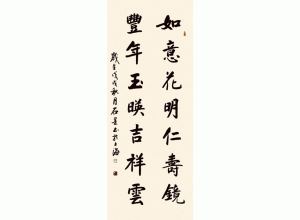 如意花明仁壽鏡
豐年玉映吉祥雲
歲在戊戌秋月石墨書於上海